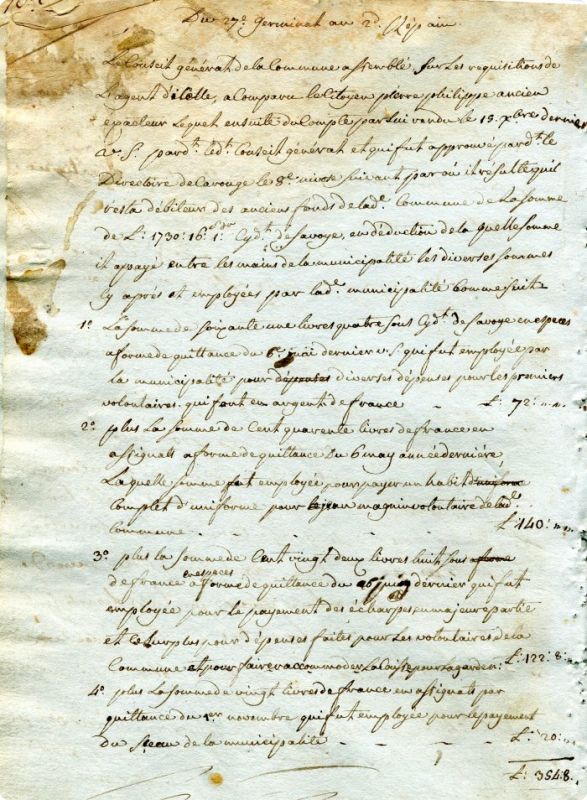 Du 27e. Germinal an 2d. Répain.
Le Conseil général de la Commune assemblé, sur Les requisitions de
L'agent d'icelle, a Comparu le Citoyen pierre philippe ancien
exacteur Lequel ensuite du Compte par Lui rendu le 19. Xbre dernier
v. S. pardt. ledt. Conseil général et qui fut approuvé pardt. le
Directoire de Carouge le 8e. nivose suivant par où il résulte qu'il
resta débiteur des anciens fonds de lade. Commune de La Somme
de L: 1730: 16: 1: Cydt. de Savoye, en déduction de la quelle somme
il a payé entre les mains de la municipalité les diverses sommes
Cy après et employées par lade. municipalité Comme suit
1o. La somme de soixante une livres quatre sous Cydt. de Savoye en especes
a forme de quittance du 6e. mai dernier v. S. qui fut employée par
la municipalité pour dépenses diverses dépenses pour les premiers
volontaires. qui font en argent de france L: 72:
2o. plus La somme de Cent quarente livres de france en
assignats a forme de quittance Du 6 may année dernière
Laquelle somme fut employée pour payer un habit d'uniforme
Complet d'uniforme pour magnin volontaire de lade.
Commune L: 140:
3o. plus la somme de Cent vingt deux livres huit sous a forme
de france en especes a forme de quittance du 26 dernier qui fut
employée pour le payement des écharpes en majeure partie
et Ce surplus pour dépenses faites pour Les volontaires de la
Commune et pour faire raccommoder La Caisse pour la garde n: L: 122: 8:
4o. plus La somme de vingt livres de france en assignats par
quittance du 1er novembre qui fut employée pour le payement
Du Sceau de la municipalité L: 20:
L: 354: 8.